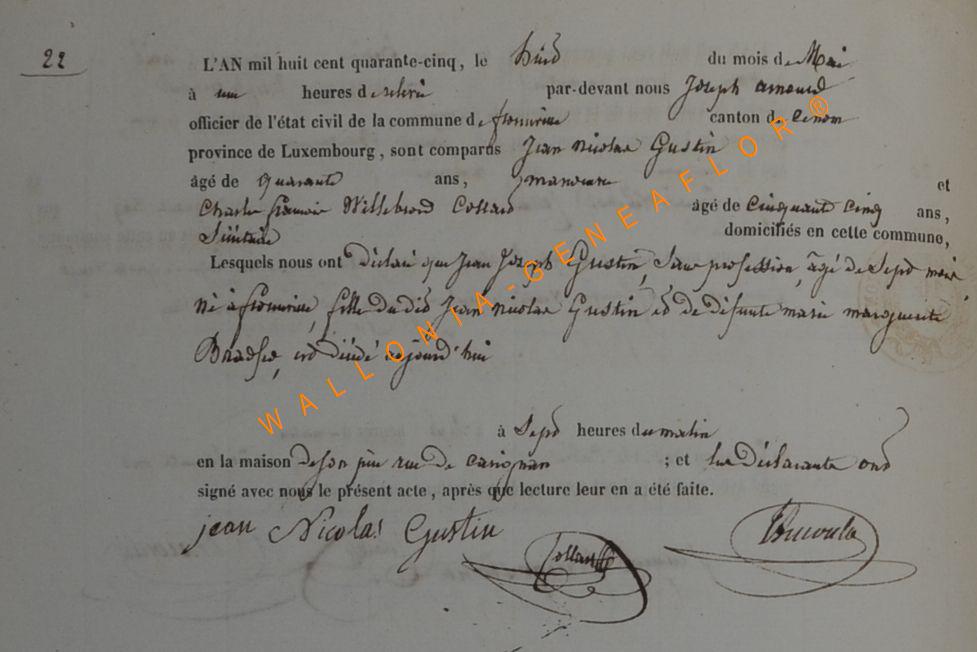 22
L'AN mil huit cent quarante-cinq, le huit du mois de Mai
à une heures de relevée par-devant nous Joseph
officier de l'état civil de la commune de canton de
province de Luxembourg, sont comparus Jean Nicolas Gustin
âgé de quarante ans, manoeuvre et
Charles François Willebrord Collard âgé de cinquante cinq ans,
domiciliés en cette commune,
Lesquels nous ont déclaré que Jean Joseph Gustin, sans profession, âgé de sept mois
né à fils dudit Jean Nicolas Gustin et de défunte marie marguerite
est décédé aujourd'hui
à sept heures du matin
en la maison de son père rue de Carignan ; et les déclarants ont
signé avec nous le présent acte, après que lecture leur en a été faite.
jean Nicolas Gustin Collard
WALLONIA-GENEAFLOR®